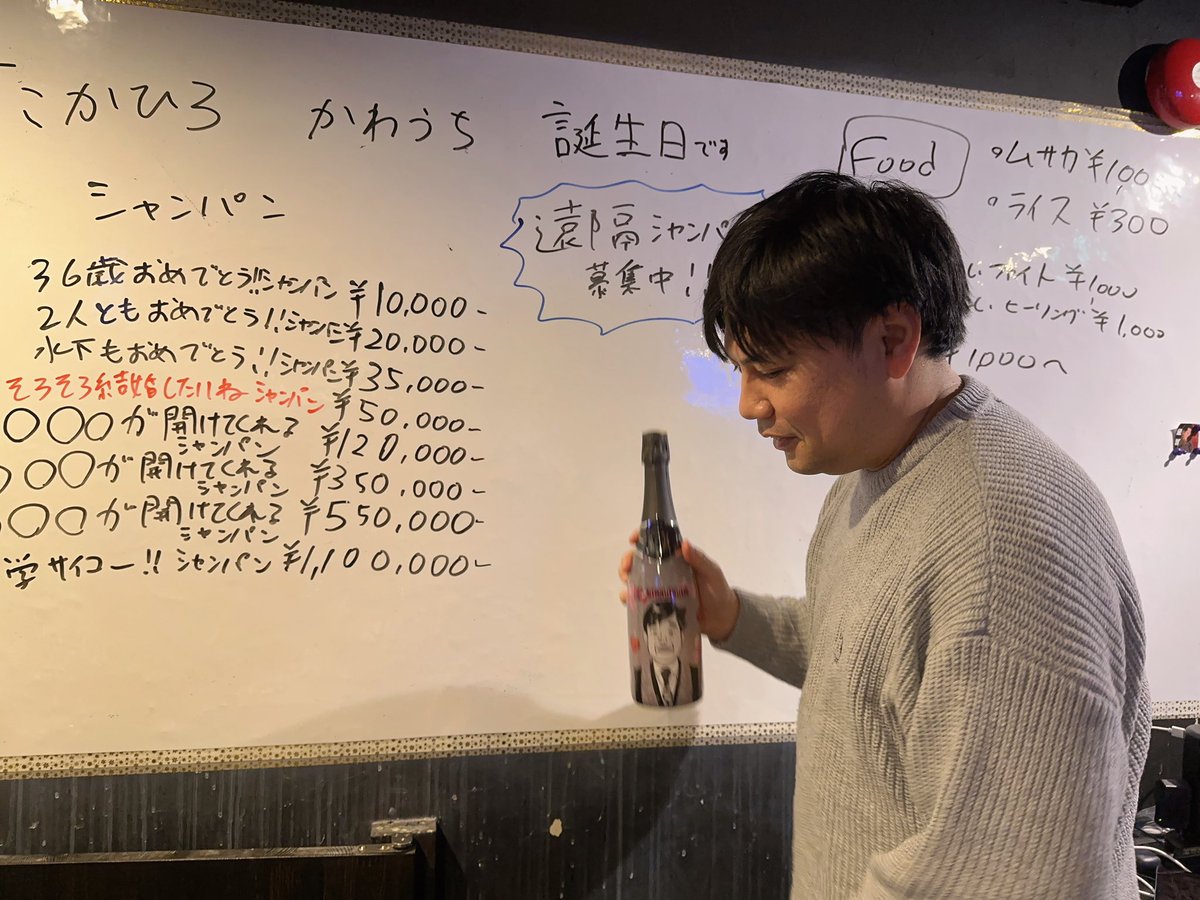 こかひろ かわうち 誕生日です
シャンパン
36歳おめでとう!!シャンパン ¥10,000-
2人ともおめでとう!!シャンパン ¥20,000-
水下もおめでとう!!シャンパン ¥35,000-
そろそろ結婚したいね シャンパン ¥50,000-
○○○が開けてくれるシャンパン ¥120,000-
○○○が開けてくれるシャンパン ¥350,000-
○○○が開けてくれるシャンパン ¥550,000-
学サイコー!! シャンパン ¥1,100,000-
遠隔シャンパ
募集中!!
Food
ムサカ ¥1,00
ライス ¥300
ファイト ¥1,000
ヒーリング ¥1,000
¥1,000へ